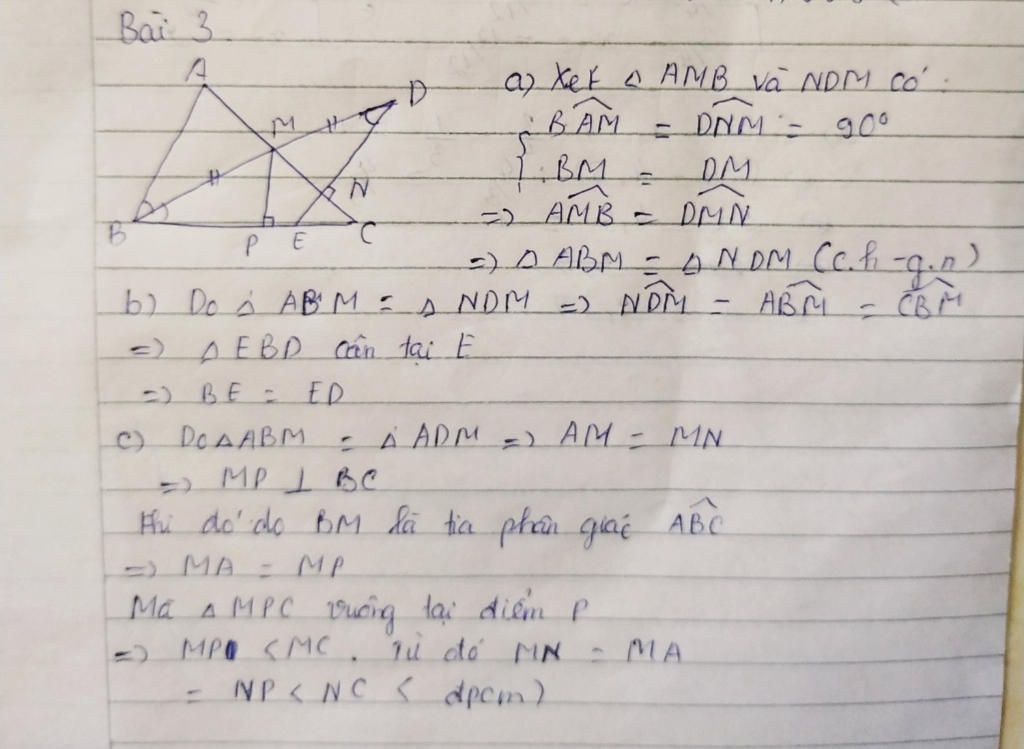 Bài 3.
A
D
M
N
B
P E C
a) Xét △ AMB và NDM có :
BAM = DNM = 90°
BM = DM
=> AMB = DMN
=> △ ABM = △ NDM (c.h-g.n)
b) Do △ ABM = △ NDM => NDM = ABM = CBM
=> △ EBD cân tại E
=> BE = ED
c) Do △ ABM = △ ADM => AM = MN
=> MP ⊥ BC
Khi đó do BM là tia phân giác ABC
=> MA = MP
Mà △ MPC vuông tại điểm P
=> MP < MC. Từ đó MN = MA
= NP < NC < đpcm)